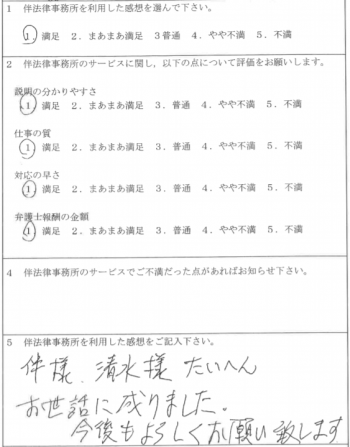 1 伴法律事務所を利用した感想を選んで下さい。
1. 満足 2. まあまあ満足 3普通 4. やや不満 5. 不満
2 伴法律事務所のサービスに関し，以下の点について評価をお願いします。
説明の分かりやすさ
1 満足 2. まあまあ満足 3. 普通 4. やや不満 5. 不満
仕事の質
1 満足 2. まあまあ満足 3. 普通 4. やや不満 5. 不満
対応の早さ
1 満足 2. まあまあ満足 3. 普通 4. やや不満 5. 不満
弁護士報酬の金額
1 満足 2. まあまあ満足 3. 普通 4. やや不満 5. 不満
4 伴法律事務所のサービスでご不満だった点があればお知らせ下さい。
5 伴法律事務所を利用した感想をご記入下さい。
伴様、清水様 たいへん
お世話に成りました。
今後もよろしくお願い致します